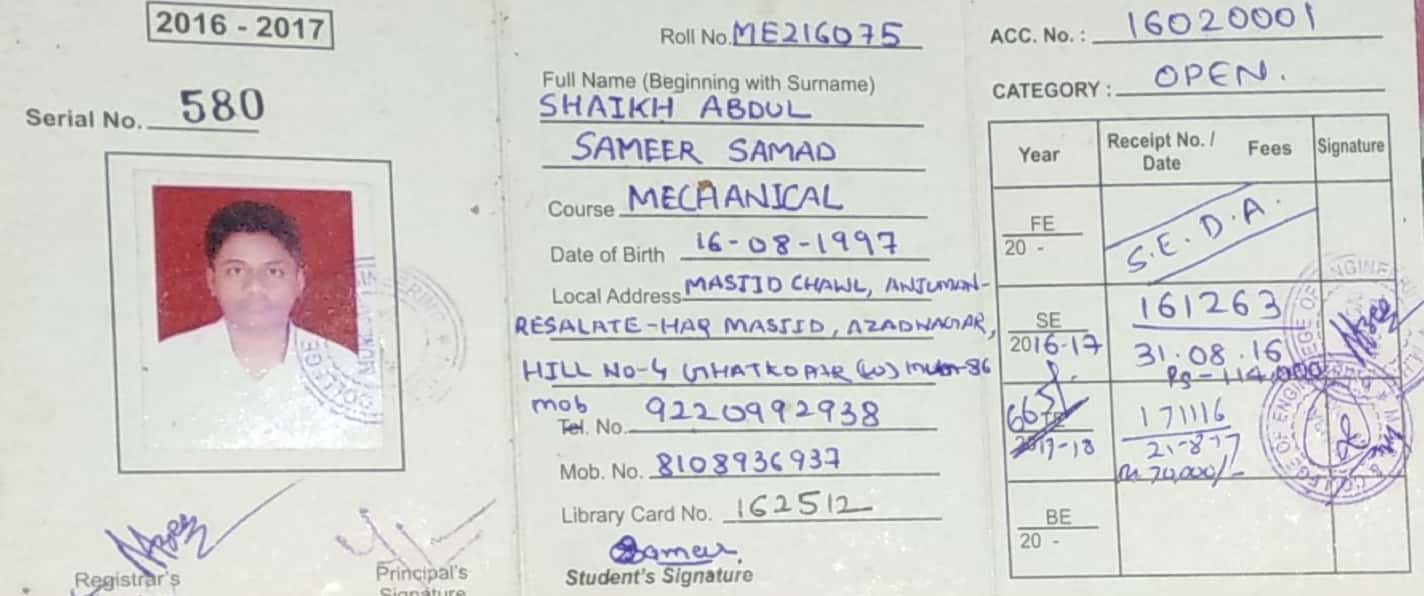 2016 - 2017
Serial No. 580
Registrar's
Principal's
Signature
Roll No. ME216075
Full Name (Beginning with Surname)
SHAIKH ABDUL
SAMEER SAMAD
Course MECHANICAL
Date of Birth 16-08-1997
Local Address MASJID CHAWL, ANJUMAN-
RESALATE-HAQ MASJID, AZADNAGAR,
HILL NO-4 GHATKOPAR (W) mum-86
mob
Tel. No. 9220992938
Mob. No. 8108936937
Library Card No. 162512
Sameer
Student's Signature
ACC. No. : 16020001
CATEGORY : OPEN.
Year Receipt No. / Date Fees Signature
FE
20 -
S.E. D.A.
SE
2016-17
161263
31.08.16
Rs - 114,000
2017-18
171116
21-8-17
Rs. 70,000/-
BE
20 -
COLLEGE OF ENGINEERING